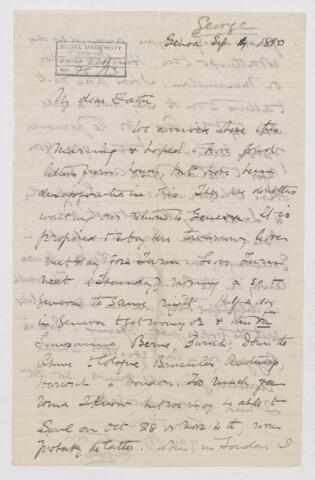 George
Genoa Sep. 1880
My dear Father
We arrived here this
morning & hoped to have found
letters from home, but have been
disappointed in this. They are doubtless
waiting our return to Geneva. It is
proposed to stay on tomorrow, leave
next day for Turin. Leave Turin
next (Thursday) morning &
Geneva the same night. Half a day
in Geneva to get money &c & then
Lausanne, Berne, Zurich, down the
Rhine to Cologne Bruxelles Antwerp,
Harwich London. So much
I know but we may be able to
Sail on Oct 28 or Nov 4th, more
probably the latter. When in London I